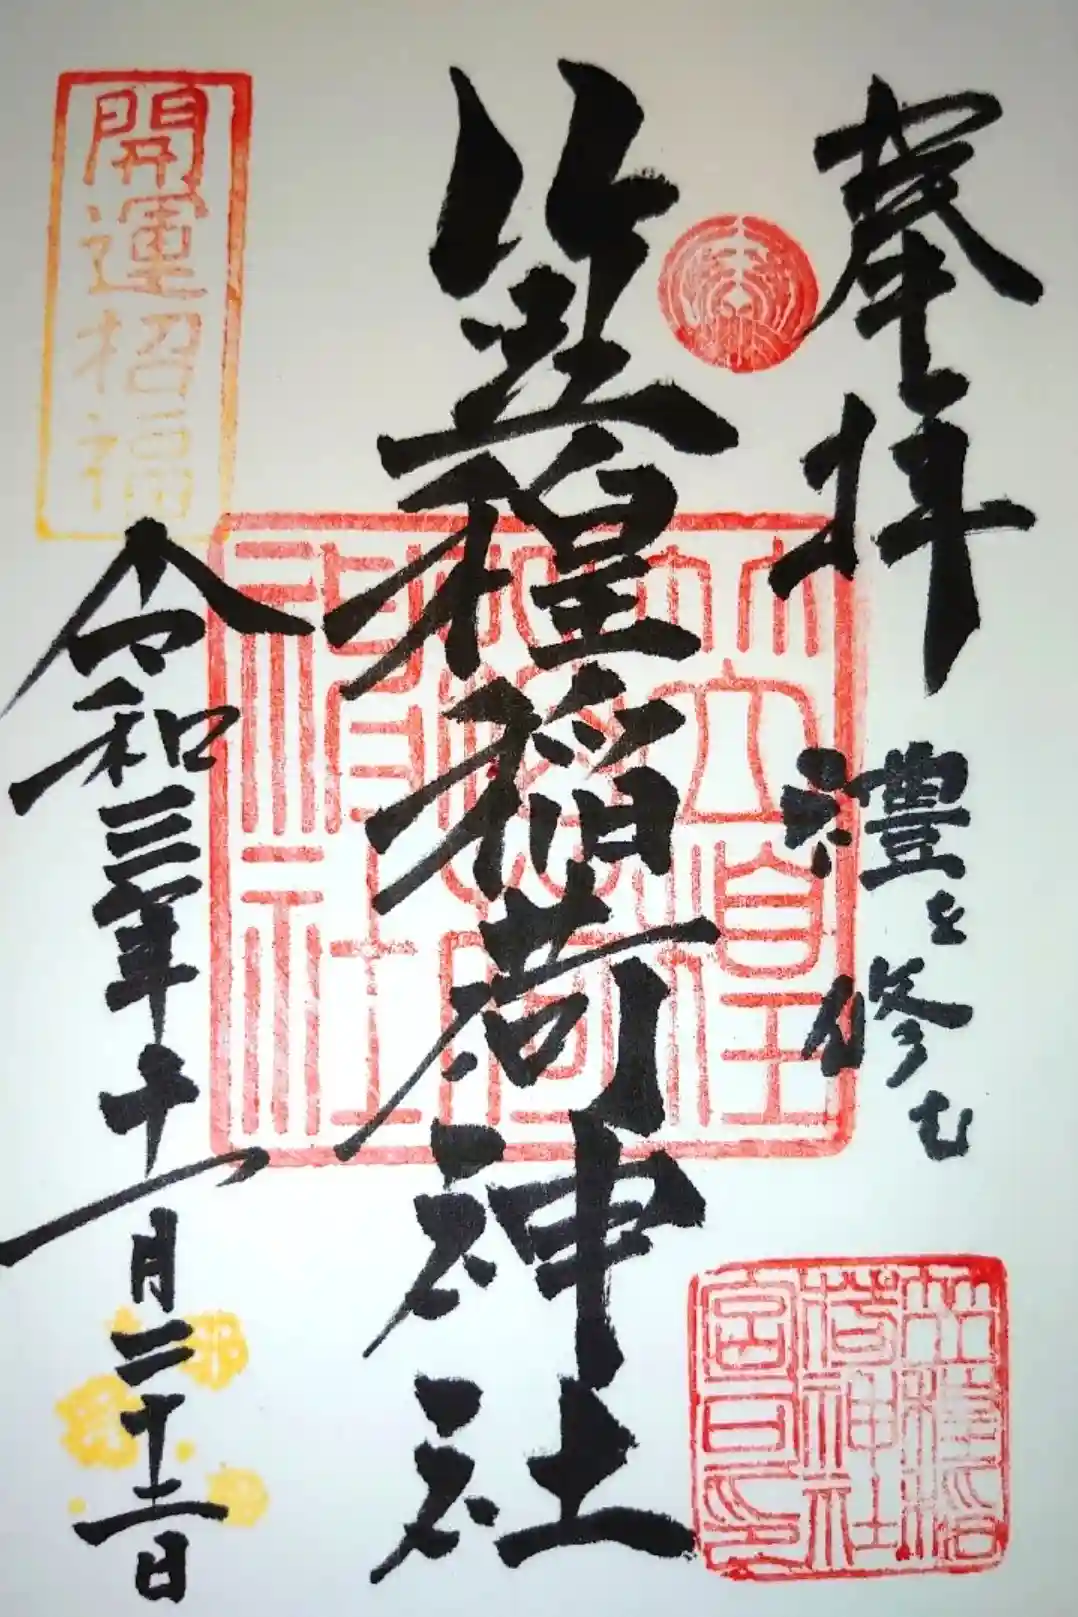 奉拝
禮を修む
笠䅣稲荷神社
令和三年十一月二十二日
開運招福
笠䅣
稲荷
神社
笠䅣稲
荷神社
宮司印